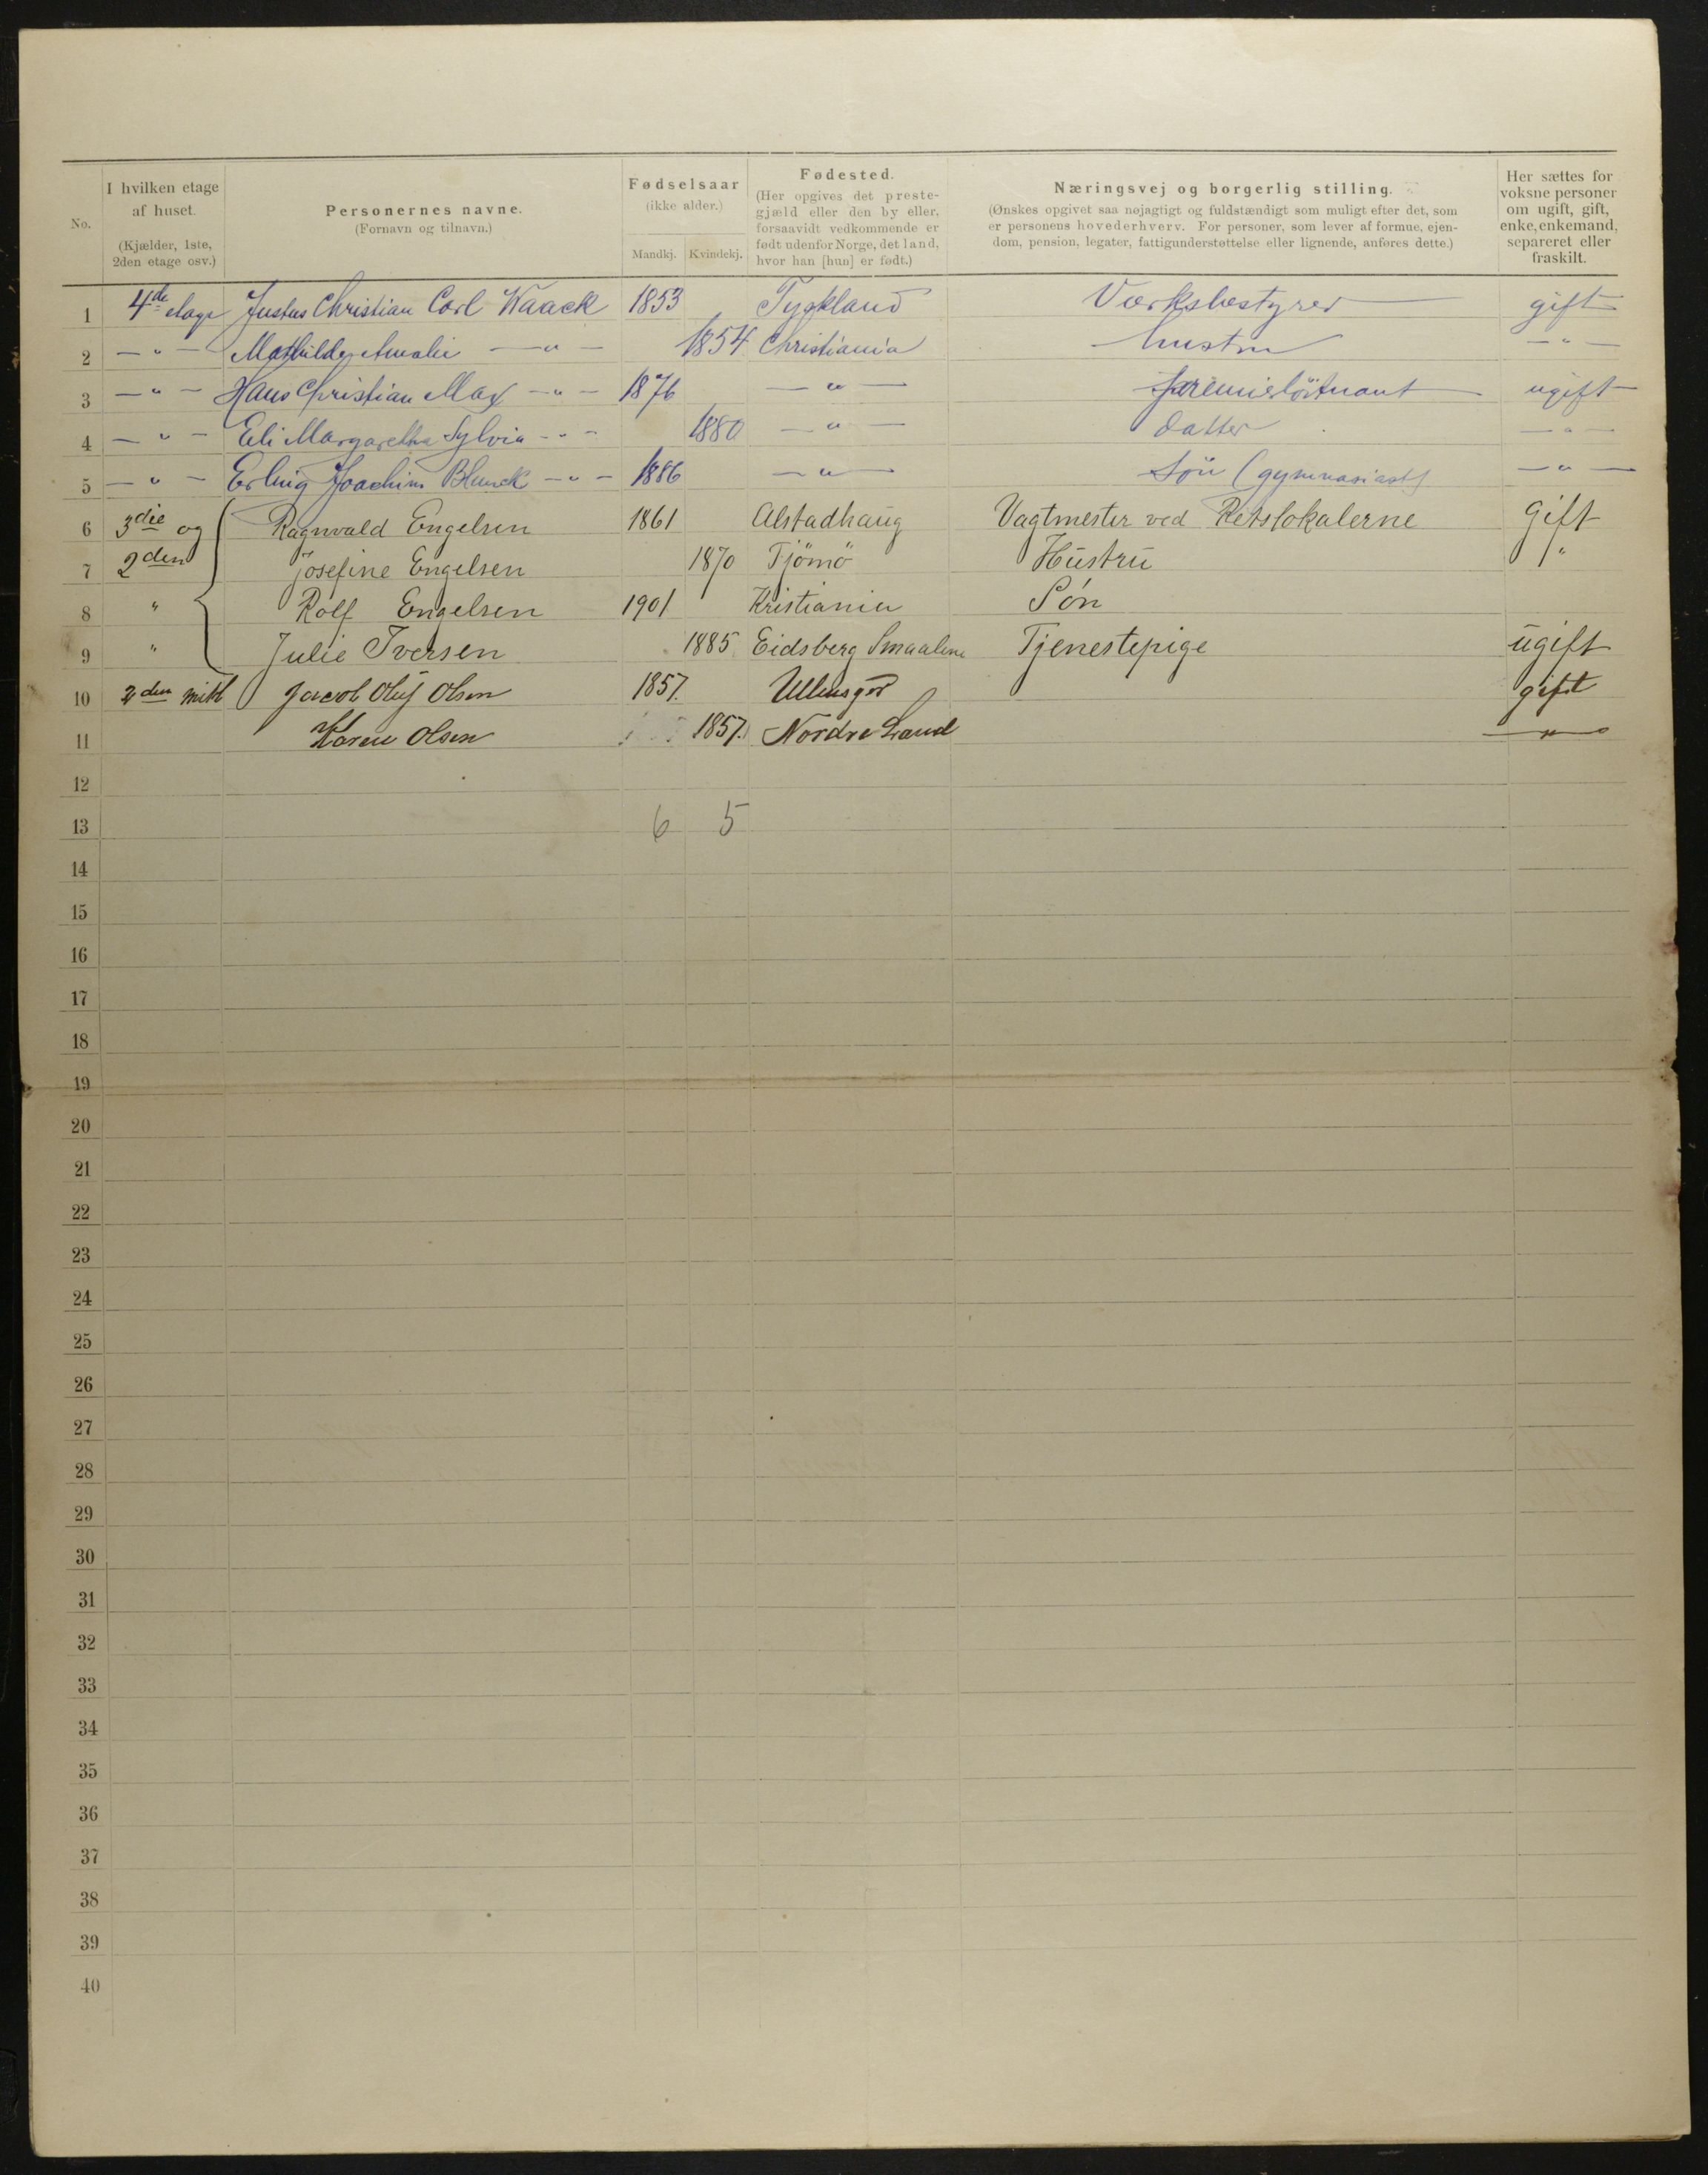 No.
I hvilken etage af huset. (Kjælder, 1ste, 2den etage osv.)
Personernes navne. (Fornavn og tilnavn.)
Fødselsaar (ikke alder.) Mandkj. Kvindekj.
Fødested. (Her opgives det prestegjæld eller den by eller, forsaavidt vedkommende er født udenfor Norge, det land, hvor han [hun] er født.)
Næringsvej og borgerlig stilling. (Ønskes opgivet saa nøjagtigt og fuldstændigt som muligt efter det, som er personens hovederhverv. For personer, som lever af formue, ejendom, pension, legater, fattigunderstøttelse eller lignende, anføres dette.)
Her sættes for voksne personer om ugift, gift, enke, enkemand, separeret eller fraskilt.
1 4de etage Justus Christian Carl Waack 1853 Tyskland Værksbestyrer gift
2 — " — Mathilde Amalie — " — 1854 Christiania hustru — " —
3 — " — Hans Christian Max — " — 1876 — " — premierlöitnant ugift
4 — " — Eli Margaretha Sylvia - " - 1880 — " — datter — " —
5 — " — Erling Joachim Blunck — " — 1886 — " — sön (gymnasiast) — " —
6 3die og Ragnvald Engelsen 1861 Alstadhaug Vagtmester ved Retslokalerne Gift
7 2den Josefine Engelsen 1870 Tjömö Hustru "
8 " Rolf Engelsen 1901 Kristiania Søn
9 " Julie Iversen 1885 Eidsberg Smaalene Tjenestepige ugift
10 2den Jacob Oluf Olsen 1857. gift
11 Karen Olsen 1857. Nordre Land — " —
12
13 6 5
14
15
16
17
18
19
20
21
22
23
24
25
26
27
28
29
30
31
32
33
34
35
36
37
38
39
40